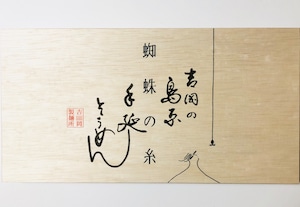 吉岡の
島原
蜘蛛の糸
手延
そうめん